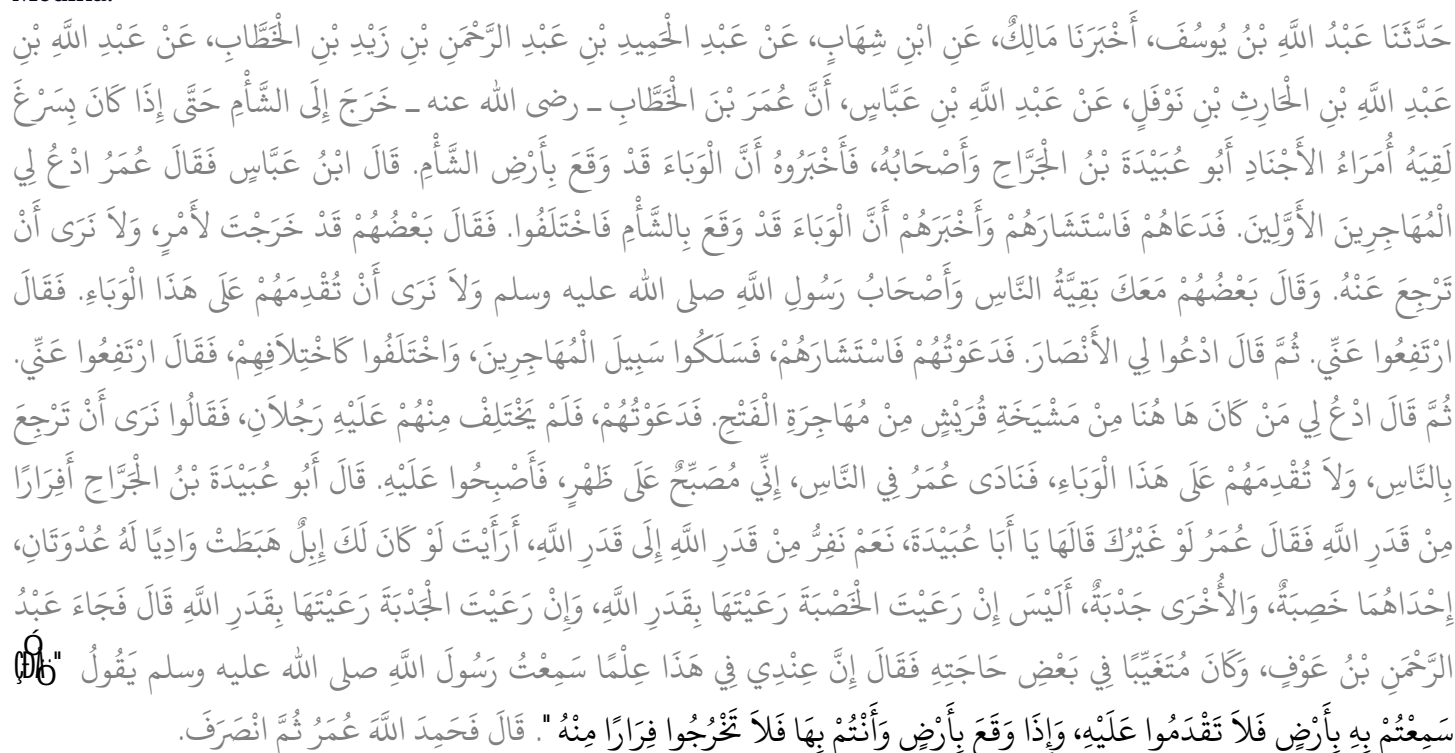 حَدَّثَنَا عَبْدُ اللَّهِ بْنُ يُوسُفَ، أَخْبَرَنَا مَالِكٌ، عَنِ ابْنِ شِهَابٍ، عَنْ عَبْدِ الْحَمِيدِ بْنِ عَبْدِ الرَّحْمَنِ بْنِ زَيْدِ بْنِ الْخَطَّابِ، عَنْ عَبْدِ اللَّهِ بْنِ
عَبْدِ اللَّهِ بْنِ الْحَارِثِ بْنِ نَوْفَلٍ، عَنْ عَبْدِ اللَّهِ بْنِ عَبَّاسٍ، أَنَّ عُمَرَ بْنَ الْخَطَّابِ ـ رضى الله عنه ـ خَرَجَ إِلَى الشَّأْمِ حَتَّى إِذَا كَانَ بِسَرْغَ
لَقِيَهُ أُمَرَاءُ الأَجْنَادِ أَبُو عُبَيْدَةَ بْنُ الْجَرَّاحِ وَأَصْحَابُهُ، فَأَخْبَرُوهُ أَنَّ الْوَبَاءَ قَدْ وَقَعَ بِأَرْضِ الشَّأْمِ. قَالَ ابْنُ عَبَّاسٍ فَقَالَ عُمَرُ ادْعُ لِي
الْمُهَاجِرِينَ الأَوَّلِينَ. فَدَعَاهُمْ فَاسْتَشَارَهُمْ وَأَخْبَرَهُمْ أَنَّ الْوَبَاءَ قَدْ وَقَعَ بِالشَّأْمِ فَاخْتَلَفُوا. فَقَالَ بَعْضُهُمْ قَدْ خَرَجْتَ لأَمْرٍ، وَلاَ نَرَى أَنْ
تَرْجِعَ عَنْهُ. وَقَالَ بَعْضُهُمْ مَعَكَ بَقِيَّةُ النَّاسِ وَأَصْحَابُ رَسُولِ اللَّهِ صلى الله عليه وسلم وَلاَ نَرَى أَنْ تُقْدِمَهُمْ عَلَى هَذَا الْوَبَاءِ. فَقَالَ
ارْتَفِعُوا عَنِّي. ثُمَّ قَالَ ادْعُوا لِي الأَنْصَارَ. فَدَعَوْتُهُمْ فَاسْتَشَارَهُمْ، فَسَلَكُوا سَبِيلَ الْمُهَاجِرِينَ، وَاخْتَلَفُوا كَاخْتِلاَفِهِمْ، فَقَالَ ارْتَفِعُوا عَنِّي.
ثُمَّ قَالَ ادْعُ لِي مَنْ كَانَ هَا هُنَا مِنْ مَشْيَخَةِ قُرَيْشٍ مِنْ مُهَاجِرَةِ الْفَتْحِ. فَدَعَوْتُهُمْ، فَلَمْ يَخْتَلِفْ مِنْهُمْ عَلَيْهِ رَجُلاَنِ، فَقَالُوا نَرَى أَنْ تَرْجِعَ
بِالنَّاسِ، وَلاَ تُقْدِمَهُمْ عَلَى هَذَا الْوَبَاءِ، فَنَادَى عُمَرُ فِي النَّاسِ، إِنِّي مُصَبِّحٌ عَلَى ظَهْرٍ، فَأَصْبِحُوا عَلَيْهِ. قَالَ أَبُو عُبَيْدَةَ بْنُ الْجَرَّاحِ أَفِرَارًا
مِنْ قَدَرِ اللَّهِ فَقَالَ عُمَرُ لَوْ غَيْرُكَ قَالَهَا يَا أَبَا عُبَيْدَةَ، نَعَمْ نَفِرُّ مِنْ قَدَرِ اللَّهِ إِلَى قَدَرِ اللَّهِ، أَرَأَيْتَ لَوْ كَانَ لَكَ إِبِلٌ هَبَطَتْ وَادِيًا لَهُ عُدْوَتَانِ،
إِحْدَاهُمَا خَصِبَةٌ، وَالأُخْرَى جَدْبَةٌ، أَلَيْسَ إِنْ رَعَيْتَ الْخَصْبَةَ رَعَيْتَهَا بِقَدَرِ اللَّهِ، وَإِنْ رَعَيْتَ الْجَدْبَةَ رَعَيْتَهَا بِقَدَرِ اللَّهِ قَالَ فَجَاءَ عَبْدُ
الرَّحْمَنِ بْنُ عَوْفٍ، وَكَانَ مُتَغَيِّبًا فِي بَعْضِ حَاجَتِهِ فَقَالَ إِنَّ عِنْدِي فِي هَذَا عِلْمًا سَمِعْتُ رَسُولَ اللَّهِ صلى الله عليه وسلم يَقُولُ "
سَمِعْتُمْ بِهِ بِأَرْضٍ فَلاَ تَقْدَمُوا عَلَيْهِ، وَإِذَا وَقَعَ بِأَرْضٍ وَأَنْتُمْ بِهَا فَلاَ تَخْرُجُوا فِرَارًا مِنْهُ ". قَالَ فَحَمِدَ اللَّهَ عُمَرُ ثُمَّ انْصَرَفَ.